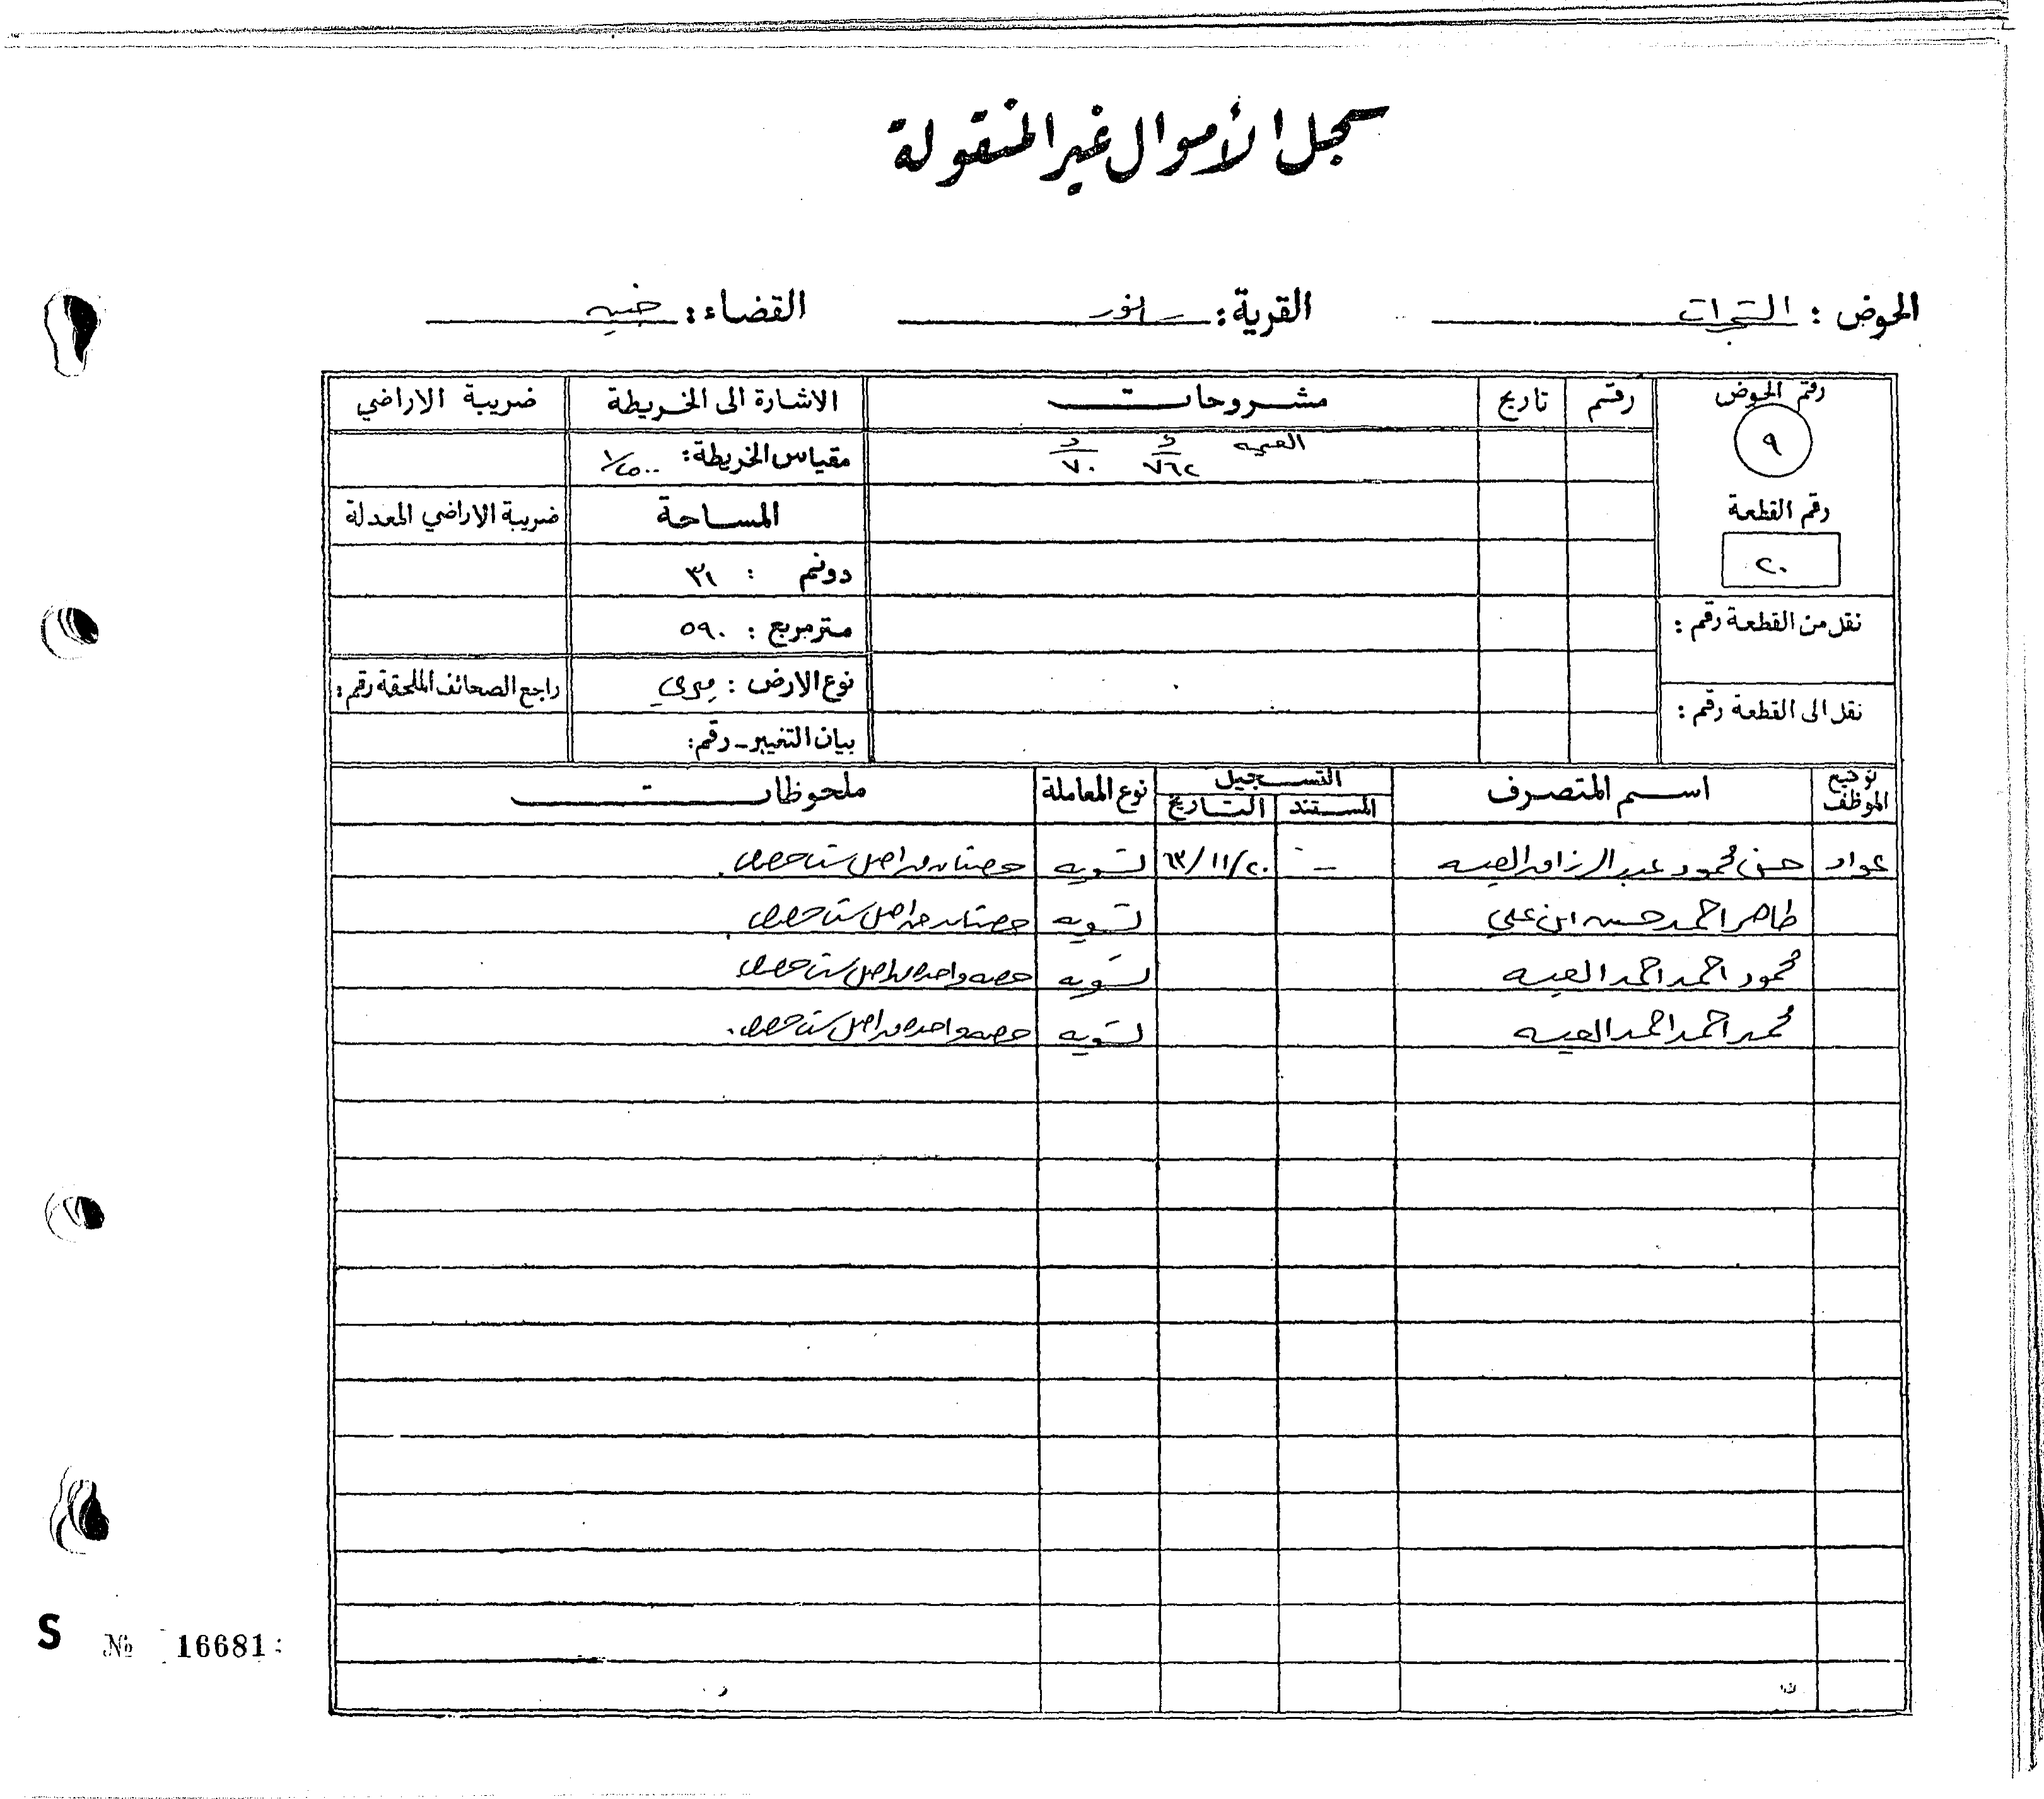 سجل الأموال غير المنقولة
الحوض : الشجرات القرية : سانور القضاء : جنين
رقم الحوض رقم تاريخ مشروحات الاشارة الى الخريطة ضريبة الاراضي
٩ ف ٧٦٢ و ٧٠ مقياس الخريطة :
المساحة ضريبة الاراضي المعدلة
رقم القطعة
٢٠ دونم : ٣١
نقل من القطعة رقم : متر مربع : ٥٩٠
نوع الارض : ميري راجع الصحائف الملحقة رقم :
نقل الى القطعة رقم : بيان التغيير - رقم :
توقيع الموظف اسم المتصرف التسجيل نوع المعاملة ملحوظات
المستند التاريخ
عواد حسن محمود عبد الرزاق العيسه - ٦٣/١١/٢٠ تسويه حصتان من اصل ست حصص
طاهر احمد حسين ابن علي تسويه حصتان من اصل ست حصص
محمود احمد احمد العيسه تسويه حصه واحده من اصل ست حصص
محمد احمد احمد العيسه تسويه حصه واحده من اصل ست حصص
S № 16681